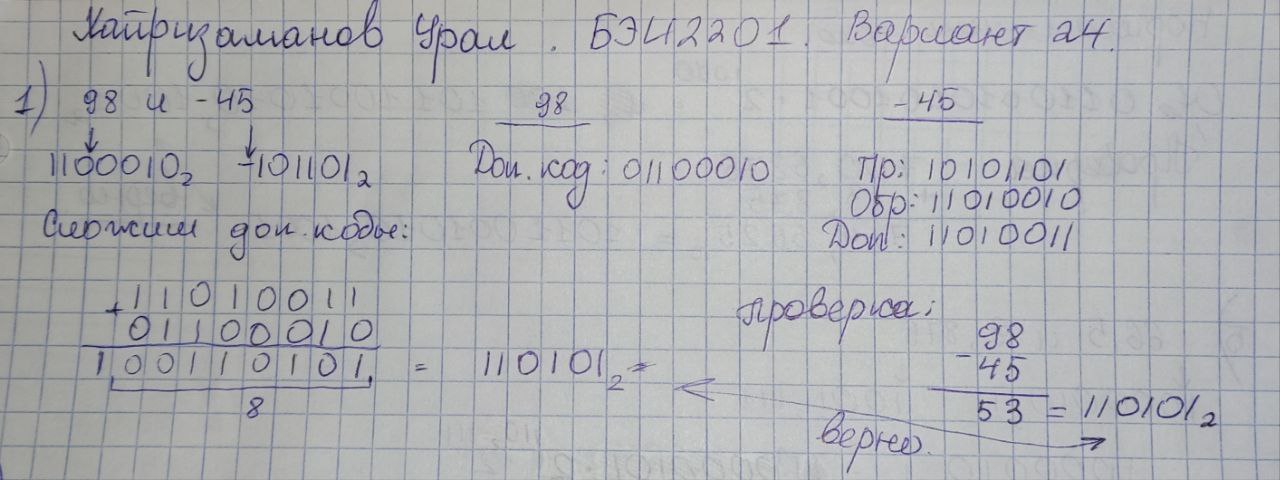 Хайризаманов Урал. БЭИ2201. Вариант 24.
1) 98 и -45
98
-45
1100010₂ -101101₂
Доп. код: 01100010
Пр: 10101101
Обр: 11010010
Доп: 11010011
Сложим доп. коды:
+11010011
01100010
100110101 = 110101₂ =
8
проверка:
98
- 45
53 = 110101₂
верно.